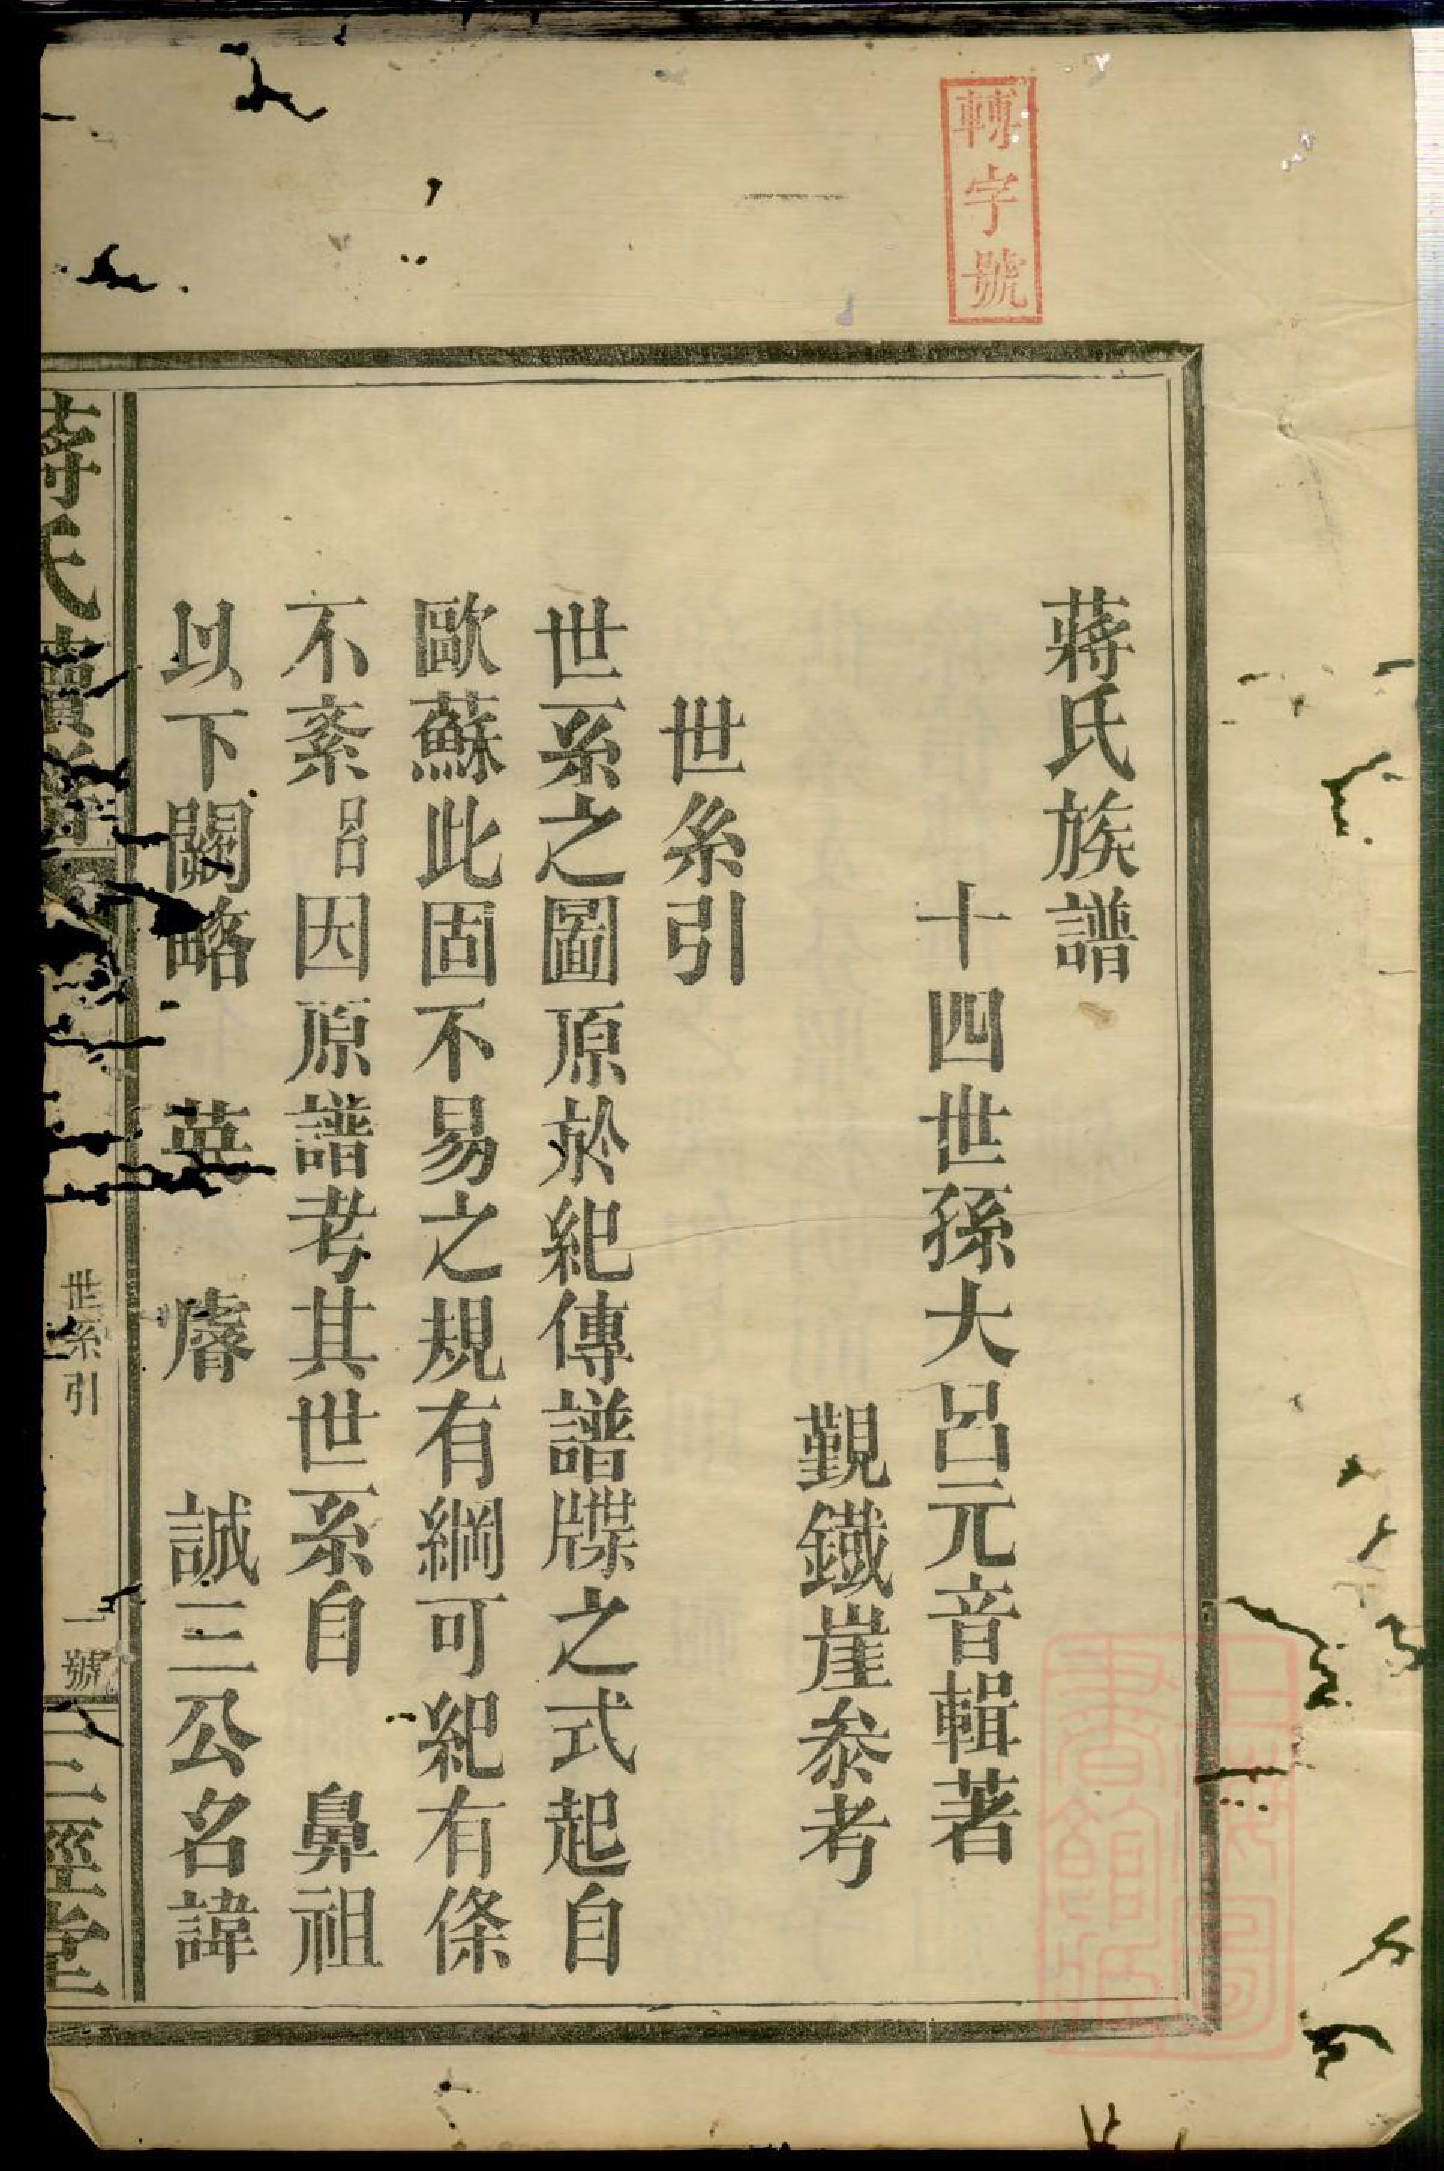 轉字號
蔣氏族譜
十四世孫大呂元音輯著
覲鐵崖叅考
世系引
世系之圖原於紀傳譜牒之式起自
歐蘇此固不易之規有綱可紀有條
不紊呂因原譜考其世系自 鼻祖
以下闕略 英 㢞 誠三公名諱
蔣氏續譜
世系引
一號
三徑堂
上海圖書館藏